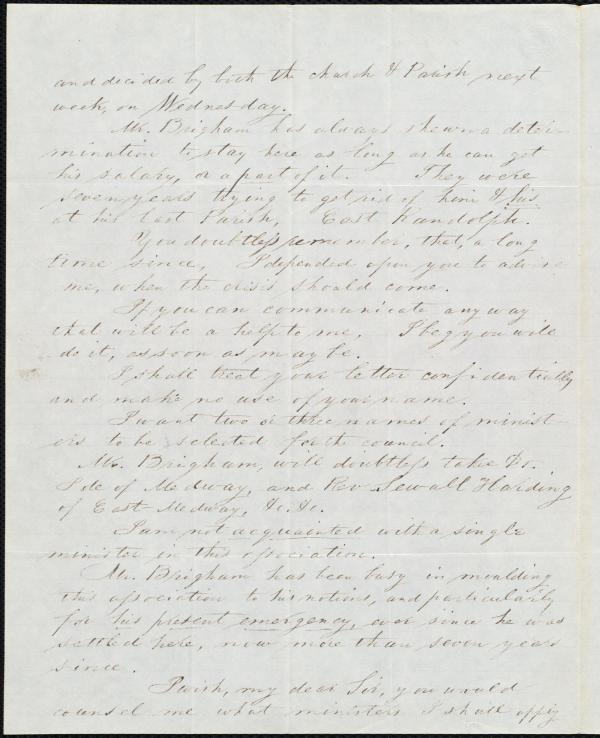 and decided by both the church & Parish next
week, on Wednesday.
Mr. Brigham has always shewn a deter-
mination to stay here as long as he can get
his salary, or a part of it. They were
seven years trying to get rid of him & his
at his last Parish, East Randolph.
You doubtless remember, that, a long
time since, I depended upon you to advise
me, when the crisis should come.
If you can communicate any way
that will be a help to me, I beg you will
do it, as soon as may be.
I shall treat your letter confidentially
and make no use of your name.
I want two or three names of minist-
ers to be selected for the council.
Mr. Brigham, will doubtless take Dr.
Ide of Medway, and Rev Sewall Harding
of East Medway, &c. &c.
I am not acquainted with a single
minister in this association.
Mr. Brigham has been busy in moulding
this association to his notions, and particularly
for his present emergency, ever since he was
settled here, now more than seven years
since.
I wish, my dear Sir, you would
counsel me what ministers I shall